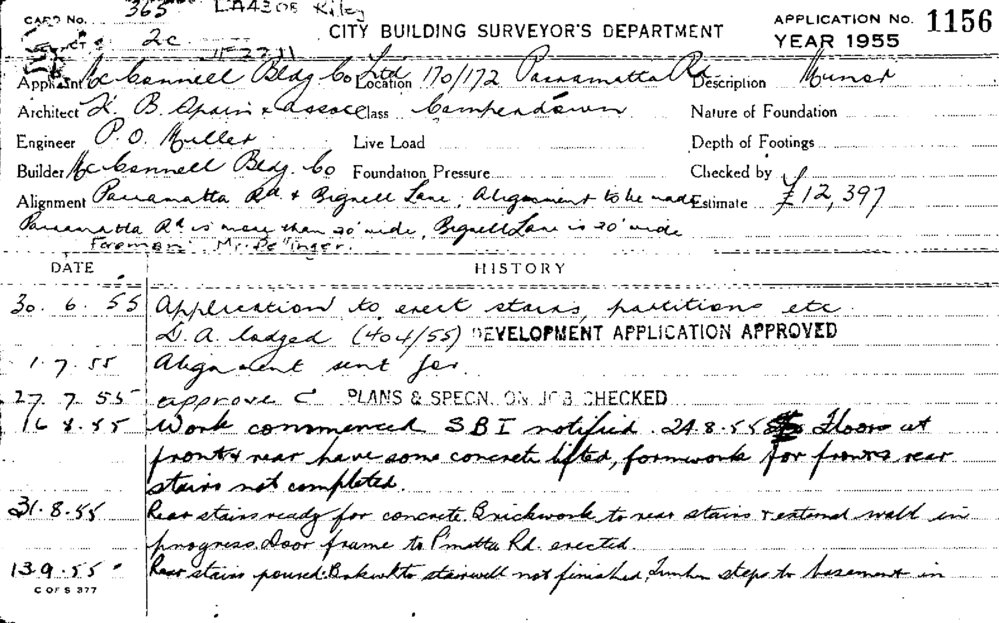 CARD No. 365 Kiley
2c
CITY BUILDING SURVEYOR'S DEPARTMENT
APPLICATION No. 1156
YEAR 1955
Applicant McConnell Bldg. Co Ltd Location 170/172 Parramatta Rd Description Minor
Architect K. B. Spain & Assoc Class Camperdown Nature of Foundation
Engineer P. O. Miller Live Load Depth of Footings
Builder McConnell Bldg. Co Foundation Pressure Checked by
Alignment Parramatta Rd & Bignell Lane, Alignment to be made Estimate £12,397
Parramatta Rd is more than 20' wide, Bignell Lane is 20' wide
Foreman: Mr.
DATE HISTORY
30. 6. 55 Application to erect stairs, partitions etc.
D. A. lodged (404/55) DEVELOPMENT APPLICATION APPROVED
1. 7. 55 Alignment sent for.
27. 7. 55 approve C PLANS & SPECN. ON JOB CHECKED
16 8. 55 Work commenced SBI notified. 24.8.55 Floors at
front & rear have some concrete lifted, formwork for front & rear
stairs not completed.
31. 8. 55 Rear stairs ready for concrete. Brickwork to rear stairs & external wall in
progress. Door frame to P'matta Rd. erected.
13 9. 55 Rear stairs poured. Bnkwk to stairwell not finished, Timber steps to basement in
C OF S 377